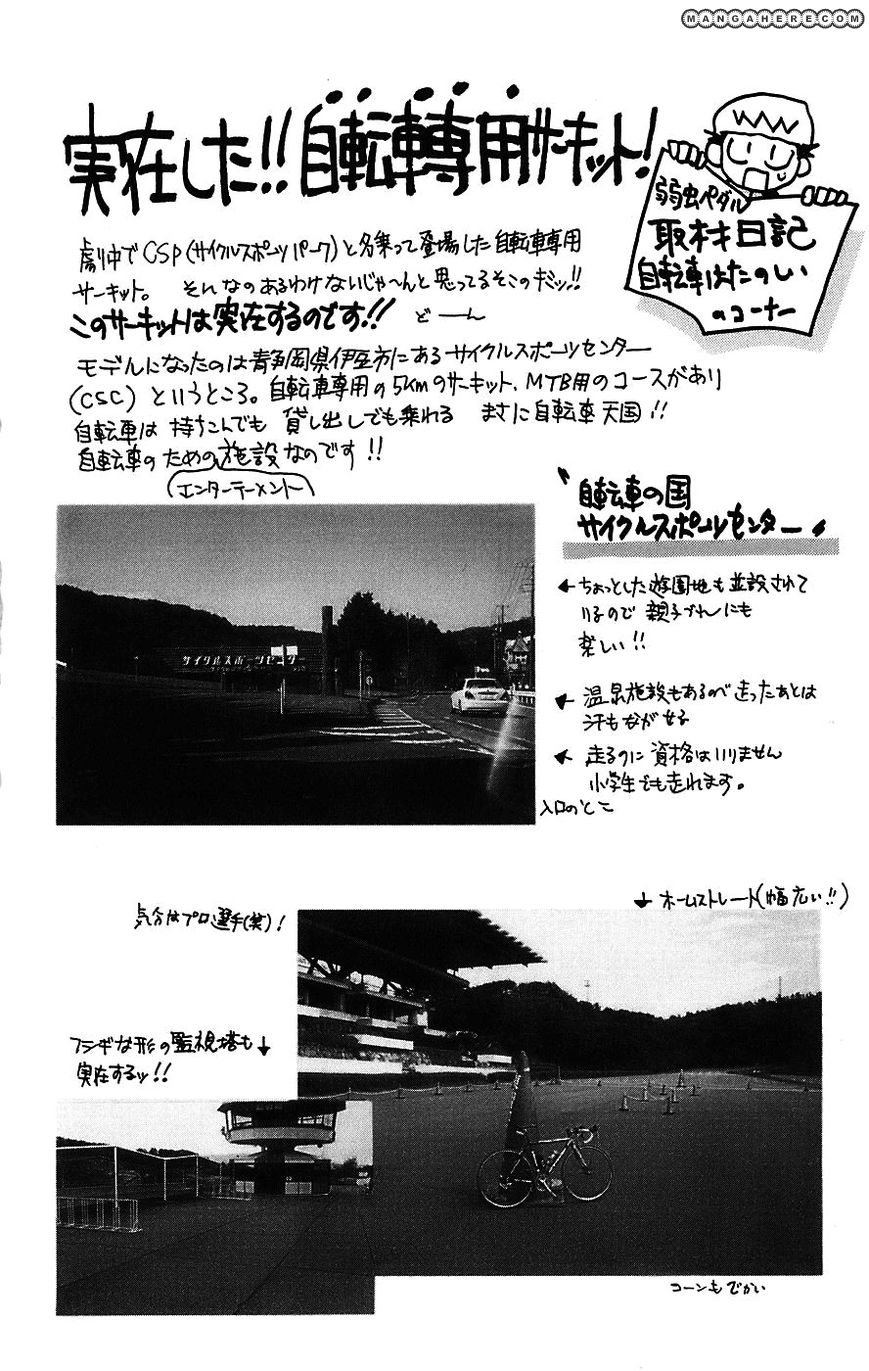 MANGAHERE.COM
実在した!!自転車専用サーキット!
弱虫ペダル
取材日記
自転車はたのしい
のコーナー
劇中でCSP(サイクルスポーツパーク)と名乗って登場した自転車専用
サーキット。 そんなのあるわけないじゃ〜んと思ってるそこのキミッ!!
このサーキットは実在するのです!! どーん
モデルになったのは静岡県伊豆市にあるサイクルスポーツセンター
(CSC)というところ。自転車専用の5kmのサーキット、MTB用のコースがあり
自転車は持ちこんでも貸し出しでも乗れる まさに自転車天国!!
自転車のための施設なのです!!
(エンターテーメント)
〝自転車の国
サイクルスポーツセンター〟
←ちょっとした遊園地も並設されて
いるので親子づれにも
楽しい!!
←温泉施設もあるので走ったあとは
汗もながせる
←走るのに資格はいりません
小学生でも走れます。
入口のとこ
サイクルスポーツセンター
↓ホームストレート(幅広い!!)
気分はプロ選手(笑)!
フシギな形の監視塔も↓
実在するッ!!
コーンもでかい